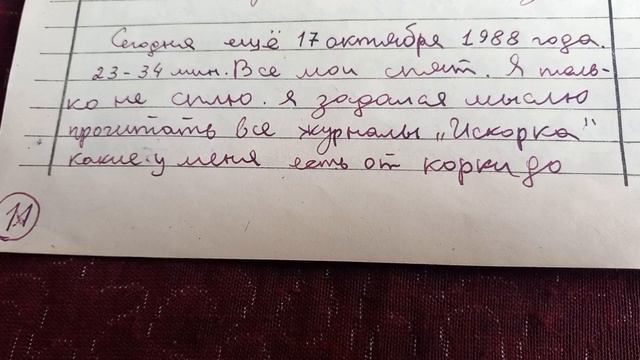 Сегодня ещё 17 октября 1988 года.
23-34 мин. Все мои спят. Я толь-
ко не сплю. я задалая мыслю
прочитать все журналы „Искорка"
какие у меня есть от корки до
11